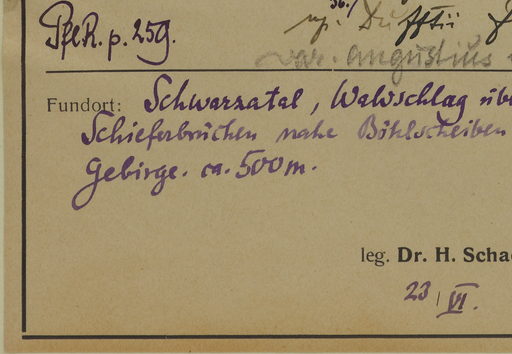 36./
PflR. p. 259.
var. angustius
Fundort: Schwarzatal, Waldschlag übe
Schieferbrüchen nahe Böhlscheiben
Gebirge. ca. 500 m.
leg. Dr. H. Scha
23/VI.